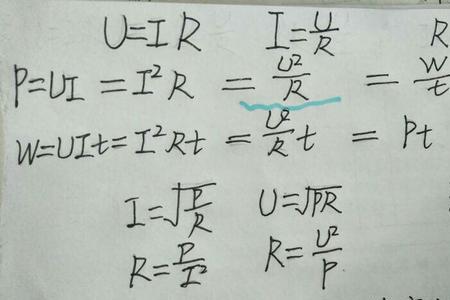 U=IR I=U/R R
P=UI=I²R=U²/R=W/t
W=UIt=I²Rt=U²/R t=Pt
I=√(P/R) U=√PR
R=P/I² R=U²/P